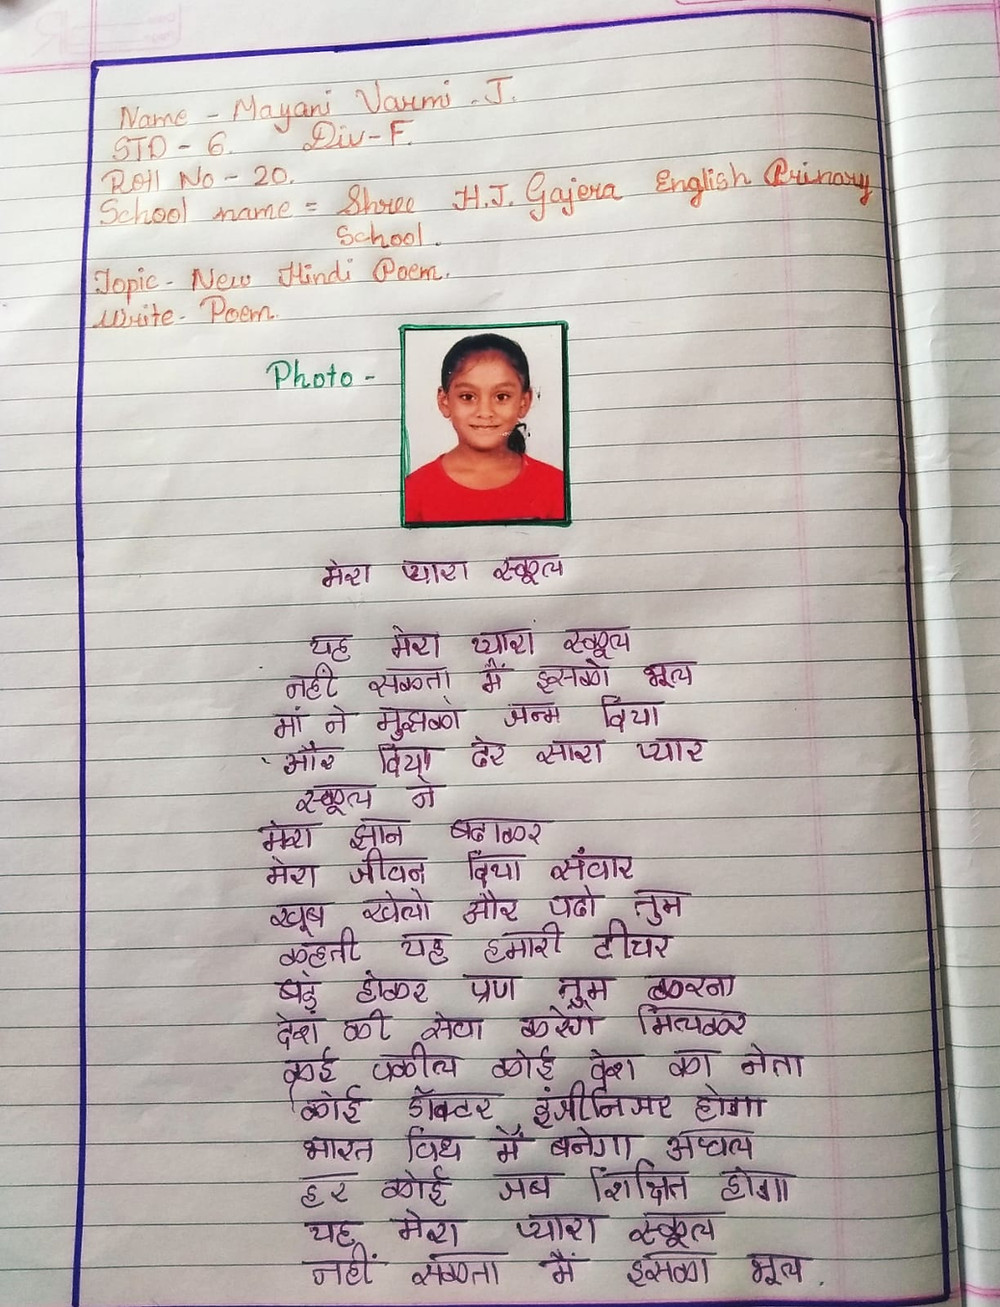 Name - Mayani Varmi .J.
STD - 6. Div-F.
Roll No - 20.
School name = Shree H.J. Gajera English Primary
School.
Topic - New Hindi Poem.
Write - Poem.
Photo -
मेरा प्यारा स्कूल
यह मेरा प्यारा स्कूल
नहीं सकता मैं इसको भूल
मां ने मुझको जन्म दिया
और दिया ढेर सारा प्यार
स्कूल ने
मेरा ज्ञान बढाकर
मेरा जीवन दिया संवार
खूब खेलो और पढो तुम
कहती यह हमारी टीचर
बड़े होकर प्रण तुम करना
देश की सेवा करेंगे मिलकर
कई वकील कोई देश का नेता
कोई डॉक्टर इंजीनिअर होगा
भारत विश्व में बनेगा अव्वल
हर कोई जब शिक्षित होगा
यह मेरा प्यारा स्कूल
नहीं सकता मैं इसका भूल .